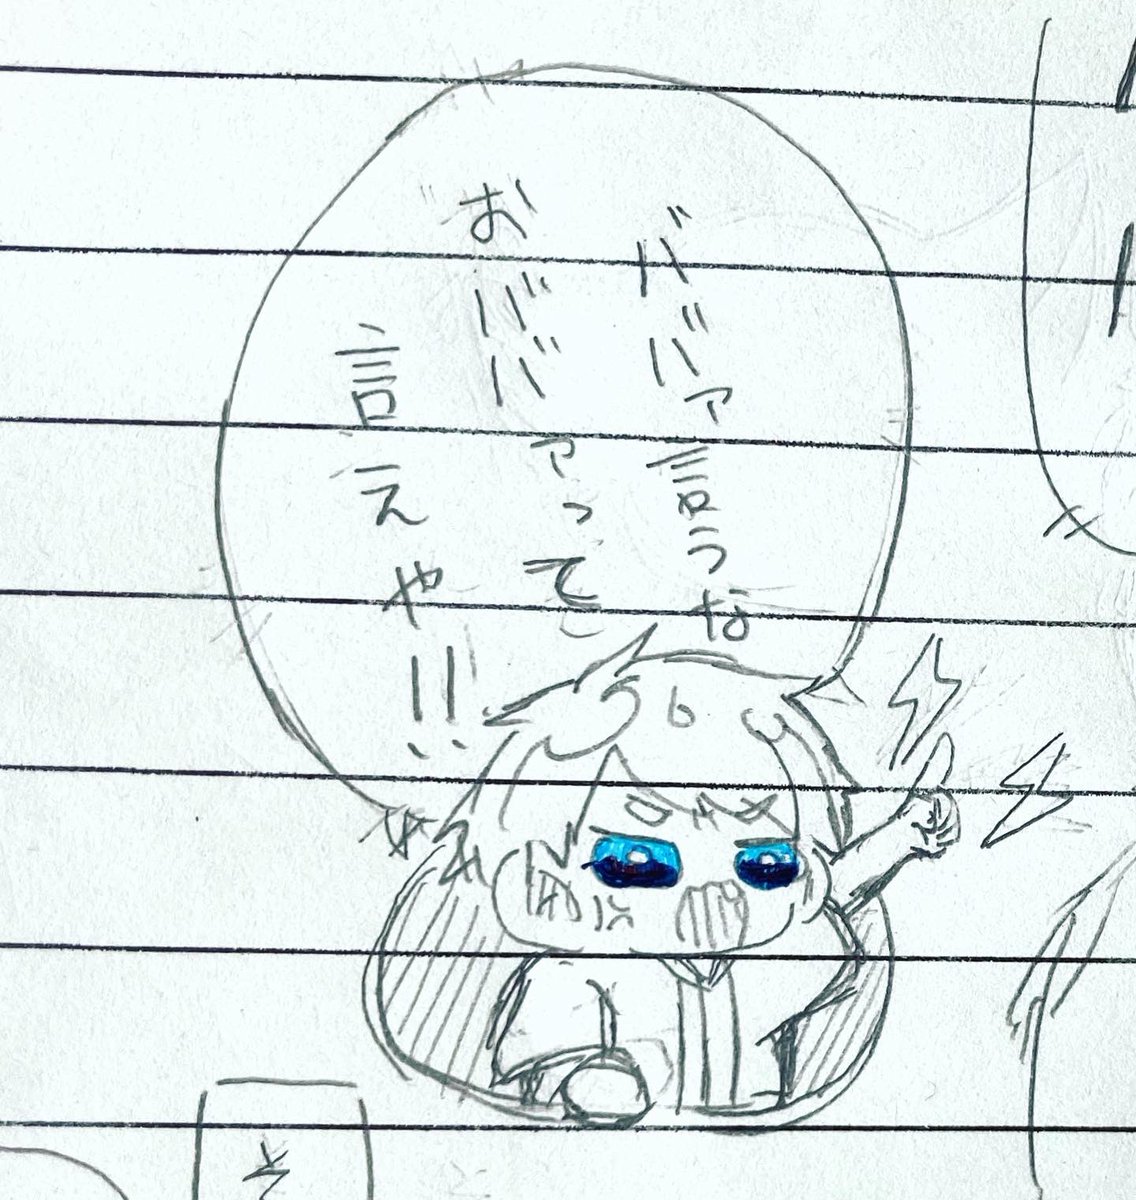 ババァ言うな
おババァって
言えや!!
そ